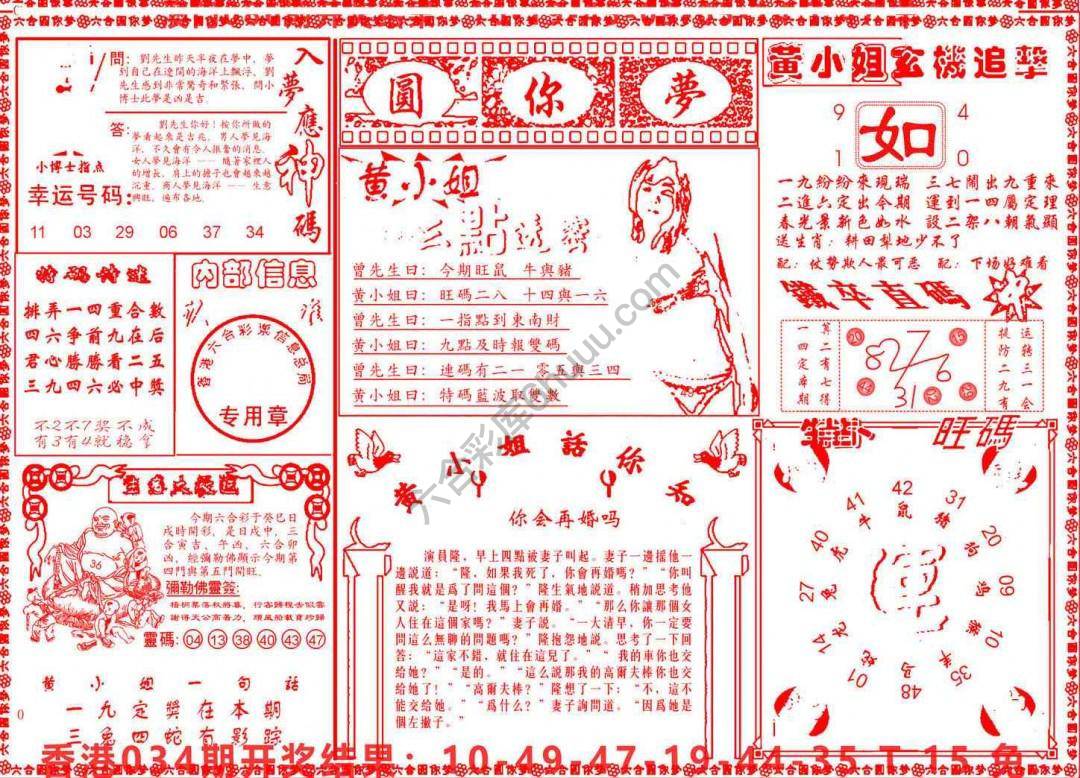 入夢應神碼
問：劉先生昨天半夜在夢中，夢
到自己在遼闊的海洋上飄浮，劉
先生感到非常驚奇和緊張，問小
博士此夢是凶是吉。
答：劉先生你好！按你所做的
夢看起來是吉兆，男人夢見海
洋，不久會有令人振奮的消息，
女人夢見海洋——隨著家裡人
的增長，肩上的擔子也會越來越
沉重，商人夢見海洋——生意
興旺，遍布各地。
小博士指点
幸运号码：
11 03 29 06 37 34
排弄一四重合數
四六爭前九在后
君心勝勝看二五
三九四六必中獎
不2不7奖不成
有3有4就穩拿
内部信息
香港六合彩票信息总局
专用章
今期六合彩于癸巳日
戌時開彩，是日戌中，三
合寅吉、午西，六合卯
四，經彌勒佛顯示今期第
四門與第五門開旺。
36
彌勒佛靈簽：
梧桐葉落秋將暮，行客歸程去似雲
謝得天公高著力，順風船載寶珍歸
靈碼：04 13 38 40 43 47
黄小姐一句話
一九定獎在本期
三兔四蛇有影踪
圓你夢
黄小姐
曾先生曰：今期旺鼠 牛與豬
黄小姐曰：旺碼二八 十四與一六
曾先生曰：一指點到東南財
黄小姐曰：九點及時報雙碼
曾先生曰：連碼有二一 零五與三四
黄小姐曰：特碼藍波取雙數
黄小姐話你活
你会再婚吗
演員隆，早上四點被妻子叫起。妻子一邊搖他一
邊説道：“隆，如果我死了，你會再婚嗎？”“你叫
醒我就是爲了問這個？”隆生氣地説道。稍加思考他
又説：“是呀！我馬上會再婚。”“那么你讓那個女
人住在這個家嗎？”妻子説。“一大清早，你一定要
問這么無聊的問題嗎？”隆抱怨地説。思考了一下回
答：“這家不錯，就住在這兒了。”“我的車你也交
給她？”“是的。”“這么説那我的高爾夫棒？也交
給她了！”“高爾夫棒？”隆想了一下：“不，這不
能交給她。”“爲什么？”妻子詢問道。“因爲她是
個左撇子。”
黄小姐玄機追擊
9 4
如
1 0
一九紛紛來現瑞 三七鬧出九重來
二進六定出令期 運到一四屬定理
春光景新色如水 設二架八朝氣顯
送生肖：耕田犁地少不了
配：仗勢欺人最可惡 配：下場好难看
鐵卒直碼
算二有七得
一四定本期
31
运转三一会
提防二九有
旺碼
42 鼠
31 豬
20
09
10
35
48
05
14
27 兔
40 虎
41 牛
香港034期开奖结果：10-49-47-19-44-35-T-15-兔
六合彩库@huuu.com